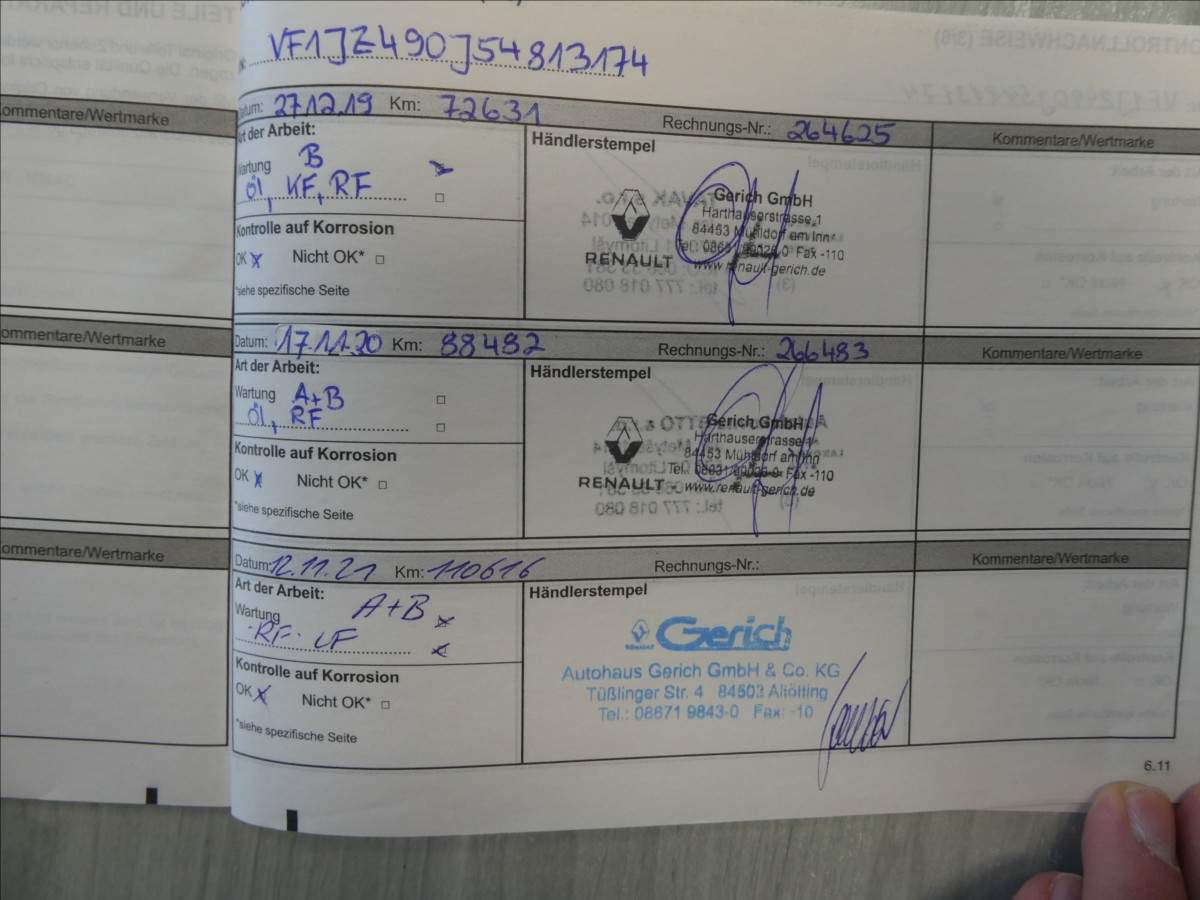 VF1JZ490J54813174
Datum: 27.12.19 Km: 72631 Rechnungs-Nr.: 264625 Kommentare/Wertmarke
Art der Arbeit:
Wartung B
Öl, KF, RF
Kontrolle auf Korrosion
OK x Nicht OK* □
*siehe spezifische Seite
Händlerstempel
RENAULT
Gerich GmbH
Harthauserstrasse 1
84453 Mühldorf am Inn
Fax -110
www.renault-gerich.de
Kommentare/Wertmarke
Datum: 17.11.20 Km: 88482 Rechnungs-Nr.: 266483 Kommentare/Wertmarke
Art der Arbeit:
Wartung A+B □
Öl, RF □
Kontrolle auf Korrosion
OK x Nicht OK* □
*siehe spezifische Seite
Händlerstempel
RENAULT
Gerich GmbH
Harthauserstrasse 1
84453 Mühldorf am Inn
Fax -110
www.renault-gerich.de
Kommentare/Wertmarke
Datum: 12.11.21 Km: 110616 Rechnungs-Nr.: Kommentare/Wertmarke
Art der Arbeit:
Wartung A+B x
RF. LF x
Kontrolle auf Korrosion
OK x Nicht OK* □
*siehe spezifische Seite
Händlerstempel
RENAULT Gerich
Autohaus Gerich GmbH & Co. KG
Tüßlinger Str. 4 84503 Altötting
Tel.: 08671 9843-0 Fax: -10
Kommentare/Wertmarke
6.11